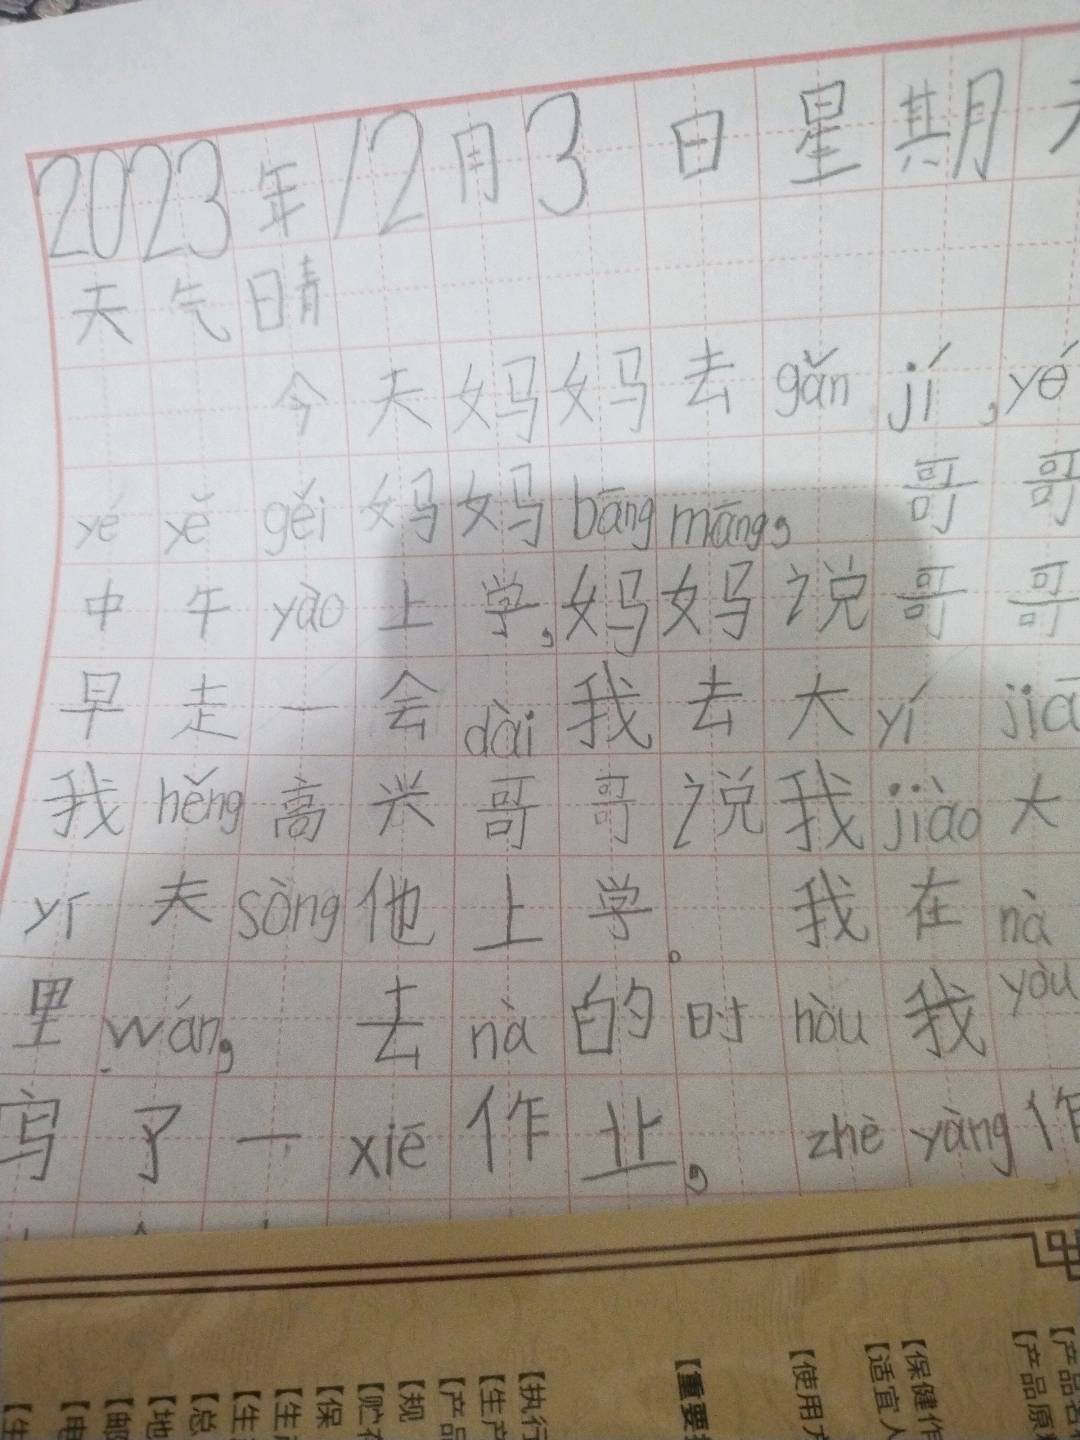 2023年12月3日星期天
天气晴
今天妈妈去gǎn jí,yé
yé yě gěi妈妈bāng māng,哥哥
中午yào上学,妈妈说哥哥
早走一会dài我去大yí jiā
我hěng高兴哥哥说我jiào大
yí夫sòng他上学。我在nà
里wán,去nà的时hòu我yòu
写了一xiē作业,zhè yàng作
【执行
【生产
【产品
【规
【贮存
【保
【生产
【生
【总
【地
【邮
【电
【生
【重要提
【使用方
【适宜人
【保健作
【产品原料
【产品名